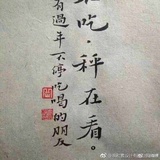 吃·秤在看。
有過年不停吃喝的朋友